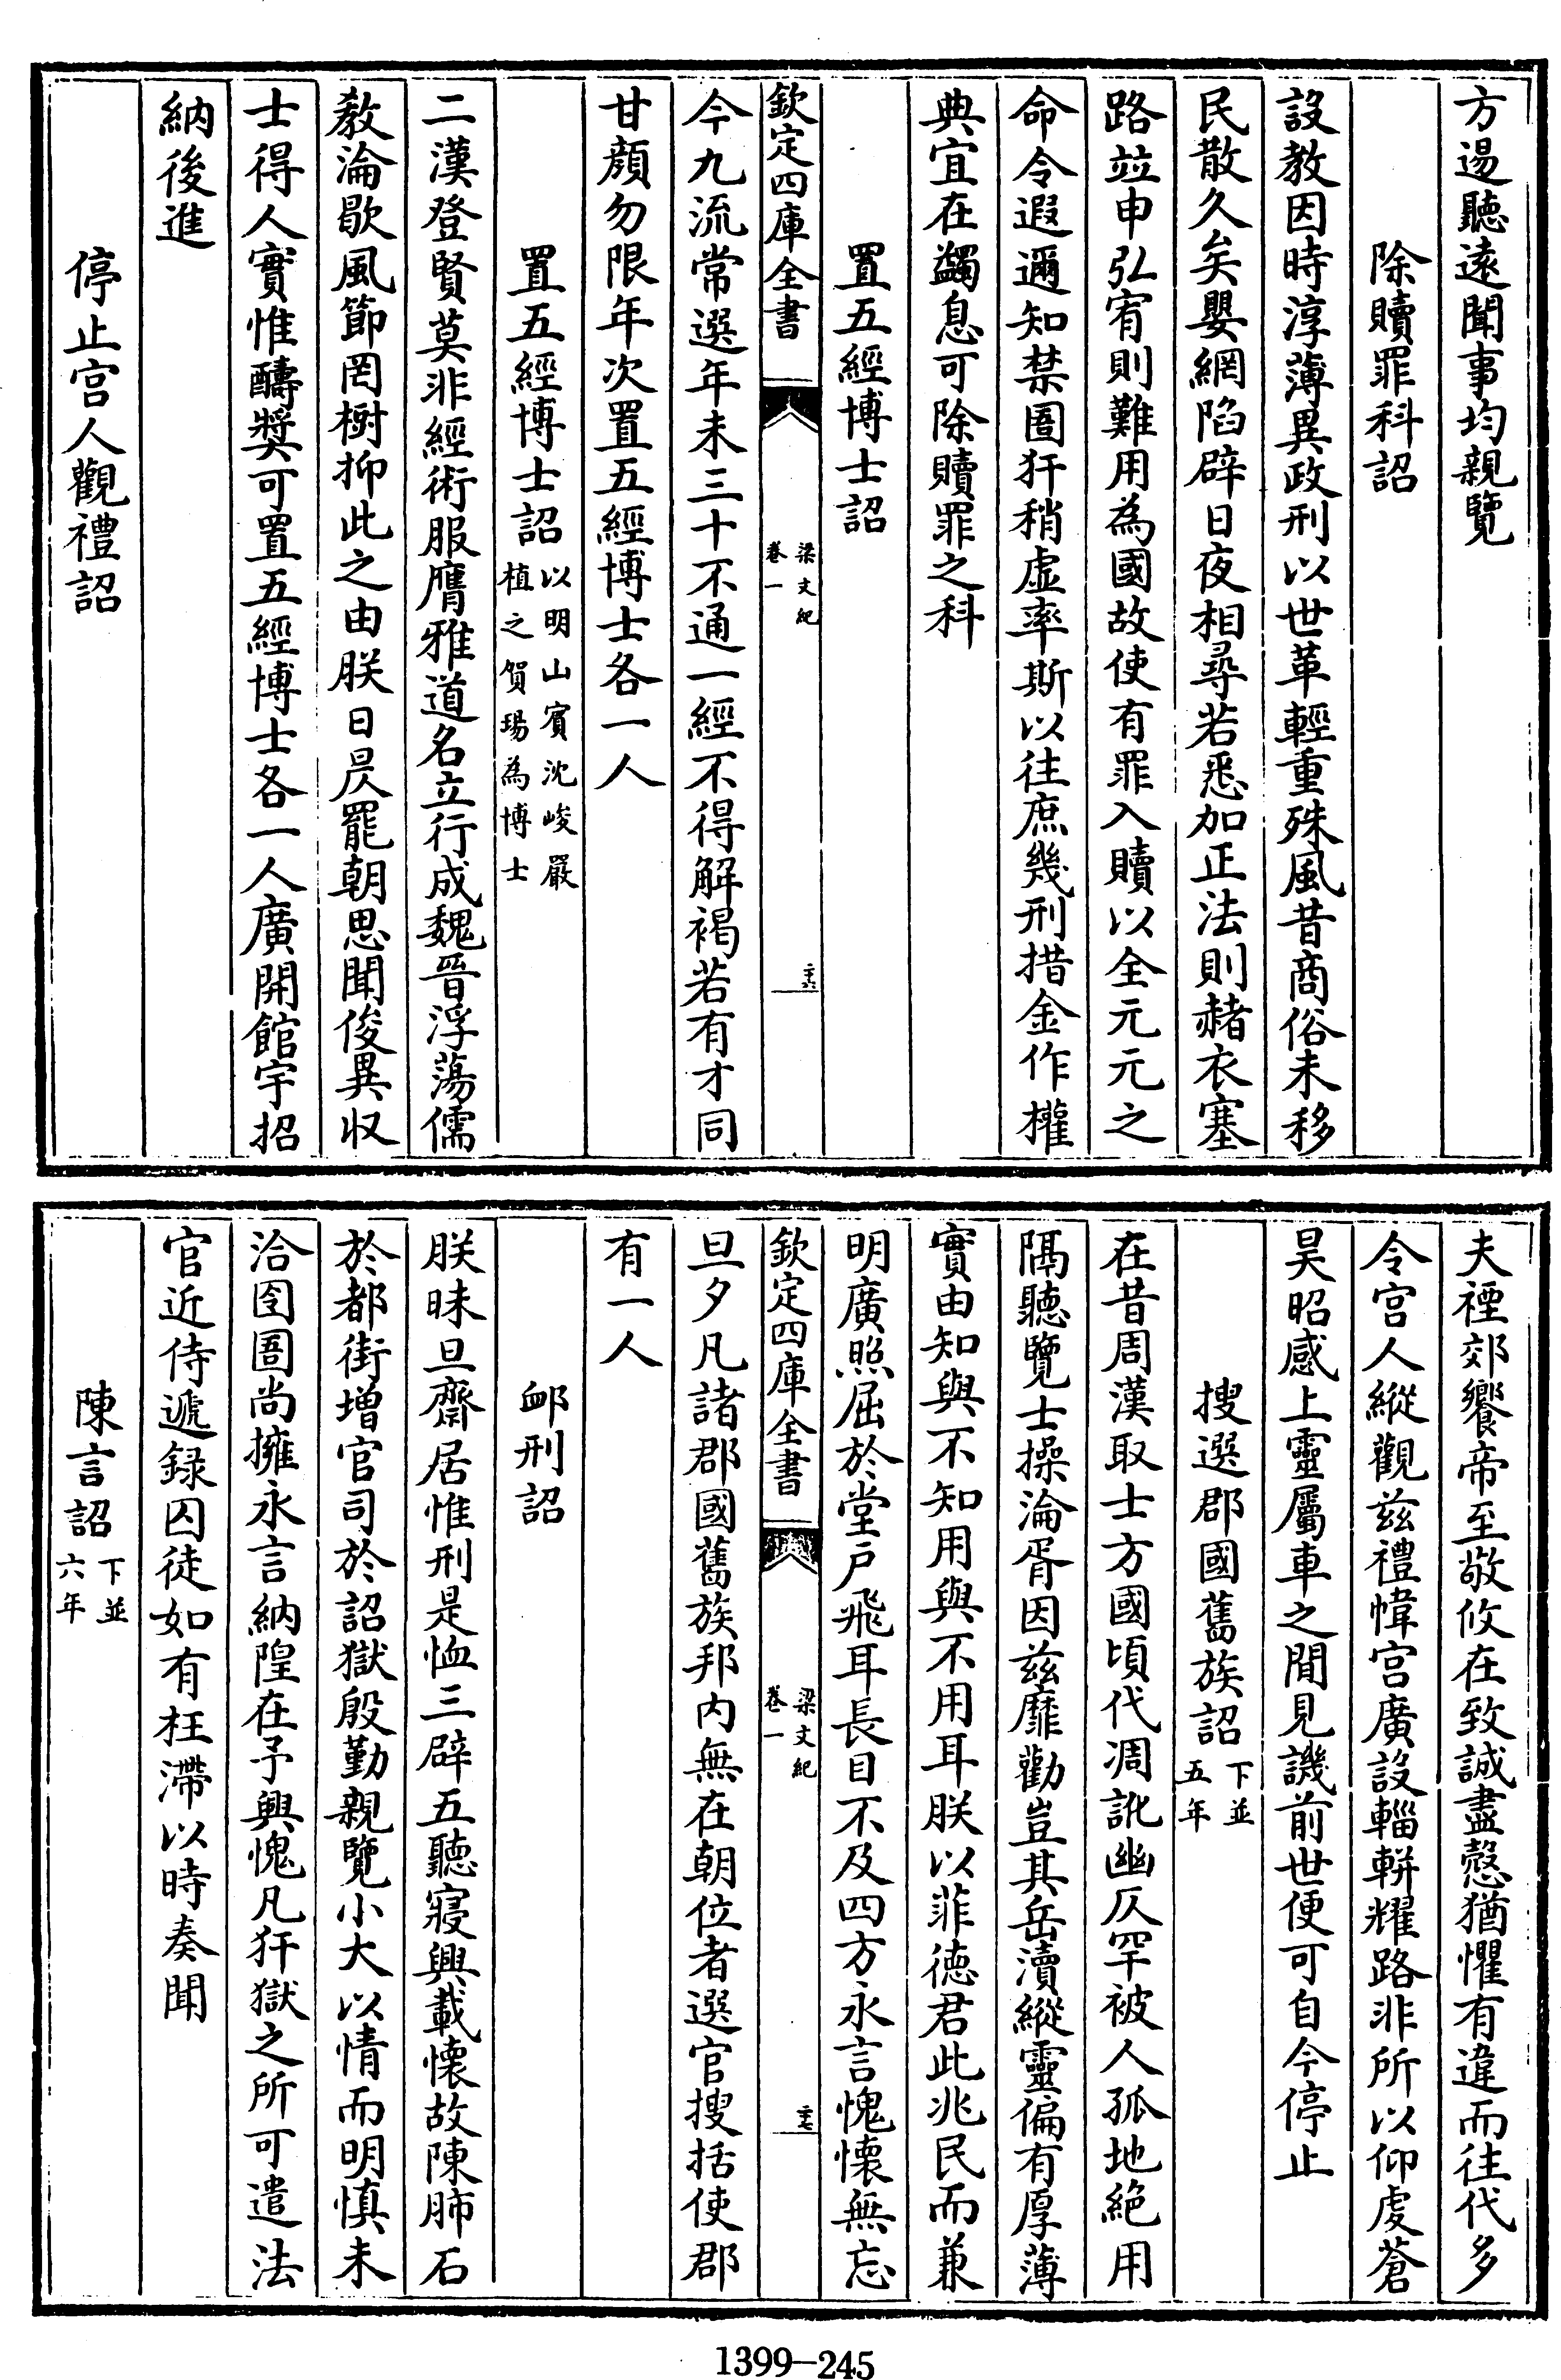 方逷聽遠聞事均親覽
除贖罪科詔
設教因時淳薄異政刑以世革輕重殊風昔商俗未移
民散久矣嬰網陷辟日夜相尋若悉加正法則赭衣塞
路竝申弘宥則難用為國故使有罪入贖以全元元之
命令遐邇知禁圄犴稍虛率斯以往庶幾刑措金作權
典宜在蠲息可除贖罪之科
置五經博士詔
欽定四庫全書 梁文紀 卷一 二十六
今九流常選年未三十不通一經不得解褐若有才同
甘顏勿限年次置五經博士各一人
置五經博士詔 以明山賓沈峻嚴植之賀瑒為博士
二漢登賢莫非經術服膺雅道名立行成魏晉浮蕩儒
教淪歇風節罔樹抑此之由朕日昃罷朝思聞俊異収
士得人實惟醻奬可置五經博士各一人廣開館宇招
納後進
停止宮人觀禮詔
夫禋郊饗帝至敬攸在致誠盡慤猶懼有違而往代多
令宮人縱觀茲禮幃宮廣設輜軿耀路非所以仰虔蒼
昊昭感上靈屬車之間見譏前世便可自今停止
搜選郡國舊族詔 下並五年
在昔周漢取士方國頃代凋訛幽仄罕被人孤地絕用
隔聽覽士操淪胥因茲靡勸豈其岳瀆縱靈偏有厚薄
實由知與不知用與不用耳朕以菲德君此兆民而兼
明廣照屈於堂戶飛耳長目不及四方永言愧懷無忘
欽定四庫全書 梁文紀 卷一 二十七
旦夕凡諸郡國舊族邦內無在朝位者選官搜括使郡
有一人
卹刑詔
朕昧旦齋居惟刑是恤三辟五聽寢興載懷故陳肺石
於都街增官司於詔獄殷勤親覽小大以情而明慎未
洽囹圄尚擁永言納隍在予興愧凡犴獄之所可遣法
官近侍遞録囚徒如有枉滯以時奏聞
陳言詔 下並六年
1399-245